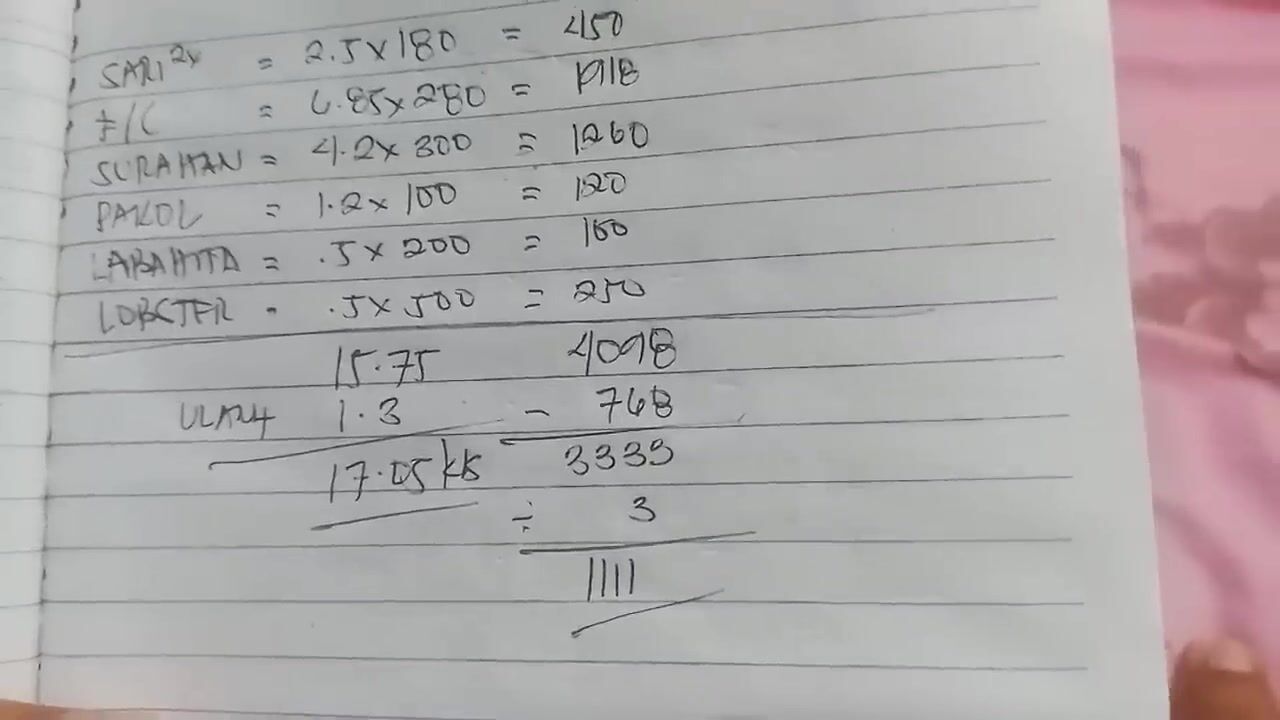 SARI 2x = 2.5 x 180 = 450
F/C = 6.85 x 280 = 1918
SURAHAN = 4.2 x 300 = 1260
PAKOL = 1.2 x 100 = 120
LABAHITA = .5 x 200 = 100
LOBSTER - .5 x 500 = 250
15.75 4098
ULAM 1.3 - 768
17.05 kls 3333
÷ 3
1111